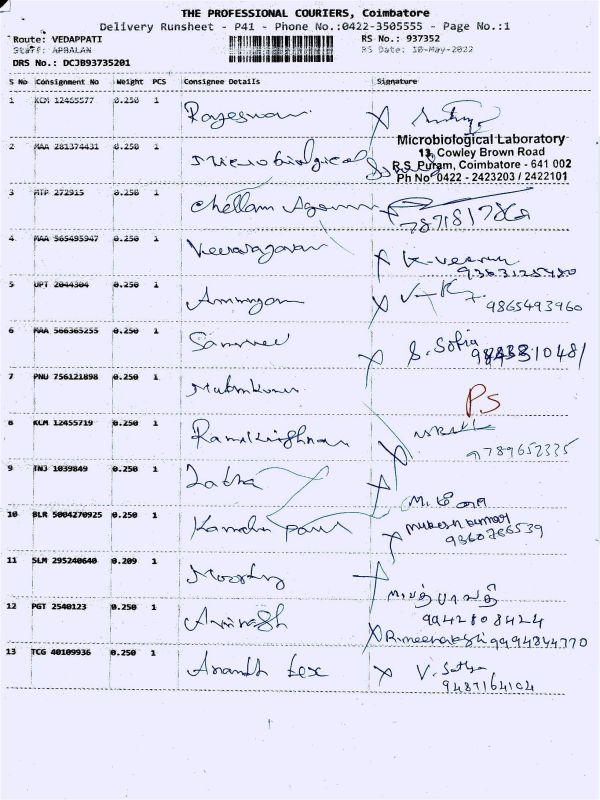 THE PROFESSIONAL COURIERS, Coimbatore
Delivery Runsheet - P41 - Phone No.:0422-3505555 - Page No.:1
Route: VEDAPPATI RS No.: 937352
Staff: APBALAN RS Date: 10-May-2022
DRS No.: DCJB93735201
S No Consignment No Weight PCS Consignee Details Signature
1 KCM 12455577 0.250 1 Rajeswari
2 MAA 281374431 0.250 1 Microbiological
Microbiological Laboratory
13, Cowley Brown Road
R.S. Puram, Coimbatore - 641 002
Ph No 0422 - 2423203 / 2422101
3 MTP 272915 0.250 1 Chellam
4 MAA 565495947 0.250 1 Veeraragavan
5 UPT 2044304 0.250 1 Ammugan
9865493960
6 MAA 566365255 0.250 1 S. Sofia
7 PNU 756121898 0.250 1 Muthukumar P.S
8 KCM 12455719 0.250 1 Ramakrishnan
9789652335
9 TNJ 1039849 0.250 1 Latha
10 BLR 5004270925 0.250 1 Kamala paul Mukesh kumar
9360786539
11 SLM 295240640 0.209 1 Moorthy
9942808424
12 PGT 2540123 0.250 1 Avinash R.meenakshi 9994844770
13 TCG 40109936 0.250 1 Anandh tex V. Sathya
9487164104